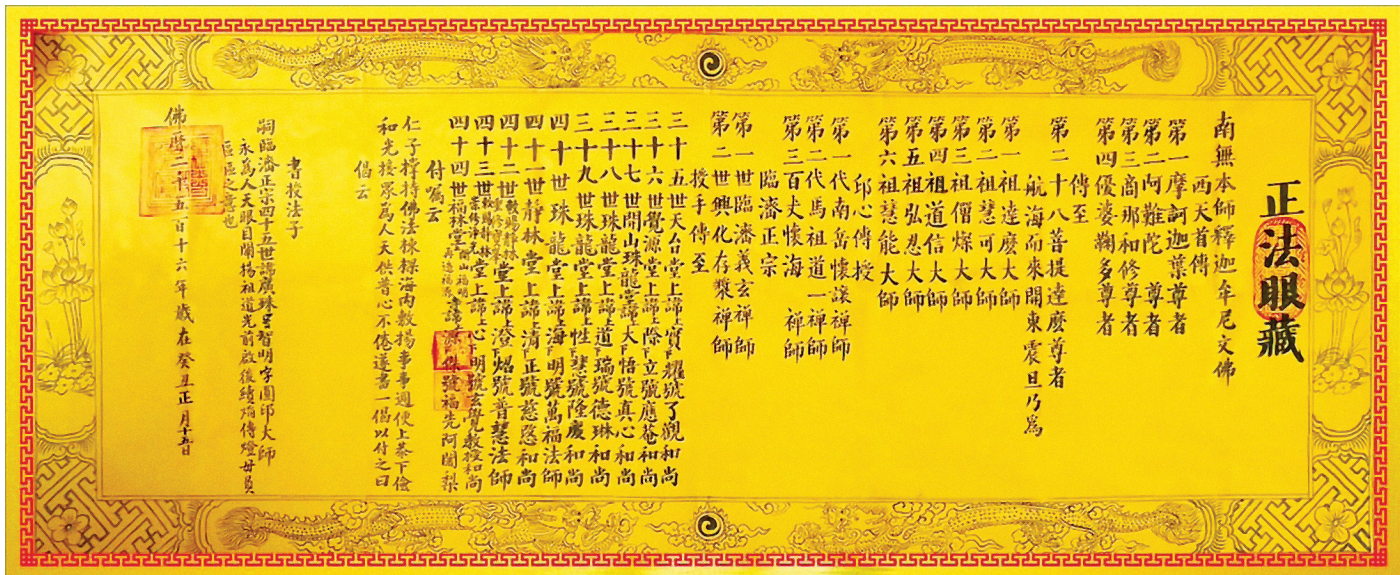 正法眼藏
南無本師釋迦牟尼文佛
西天首傳
第一摩訶迦葉尊者
第二阿難陀尊者
第三商那和修尊者
第四優婆鞠多尊者
傳至
第二十八菩提達麼尊者
航海而來開東震旦乃為
第一祖達麼大師
第二祖慧可大師
第三祖僧燦大師
第四祖道信大師
第五祖弘忍大師
第六祖慧能大師
卽心傳授
第一代南岳懷讓禪師
第二代馬祖道一禪師
第三百丈懷海禪師
臨濟正宗
第一世臨濟義玄禪師
第二世興化存槳禪師
授手傳至
三十五世天台堂上諱上實下耀號了觀和尚
三十六世覺源堂上諱上際下立號應菴和尚
三十七世開山珠龍堂諱上大下悟號真心和尚
三十八世珠龍堂上諱上道下瑞號德琳和尚
三十九世珠龍堂上諱上性下慧號隆慶和尚
四十世珠龍堂上諱上海下明號萬福法師
四十一世靜林堂上諱上清下正號慈慜和尚
四十二世堂上諱上澄下炤號普慧法師
四十三世堂上諱上心下明號玄覺教授和尚
四十四世福琳堂諱上源下傑號福先阿闍梨
付囑云
仁子擇持佛法棟樑海內敷揚事事週便上恭下儉
和光接眾為人天供普心不倦遂書一偈以付之曰
偈云
書授法子
嗣臨濟正宗四十五世諱廣珠號智明字圓印大師
永為人天眼目闡揚祖道光前啟後續焰傳燈毋負
區區之意也
佛曆二千五百十六年歲在癸丑正月十五日